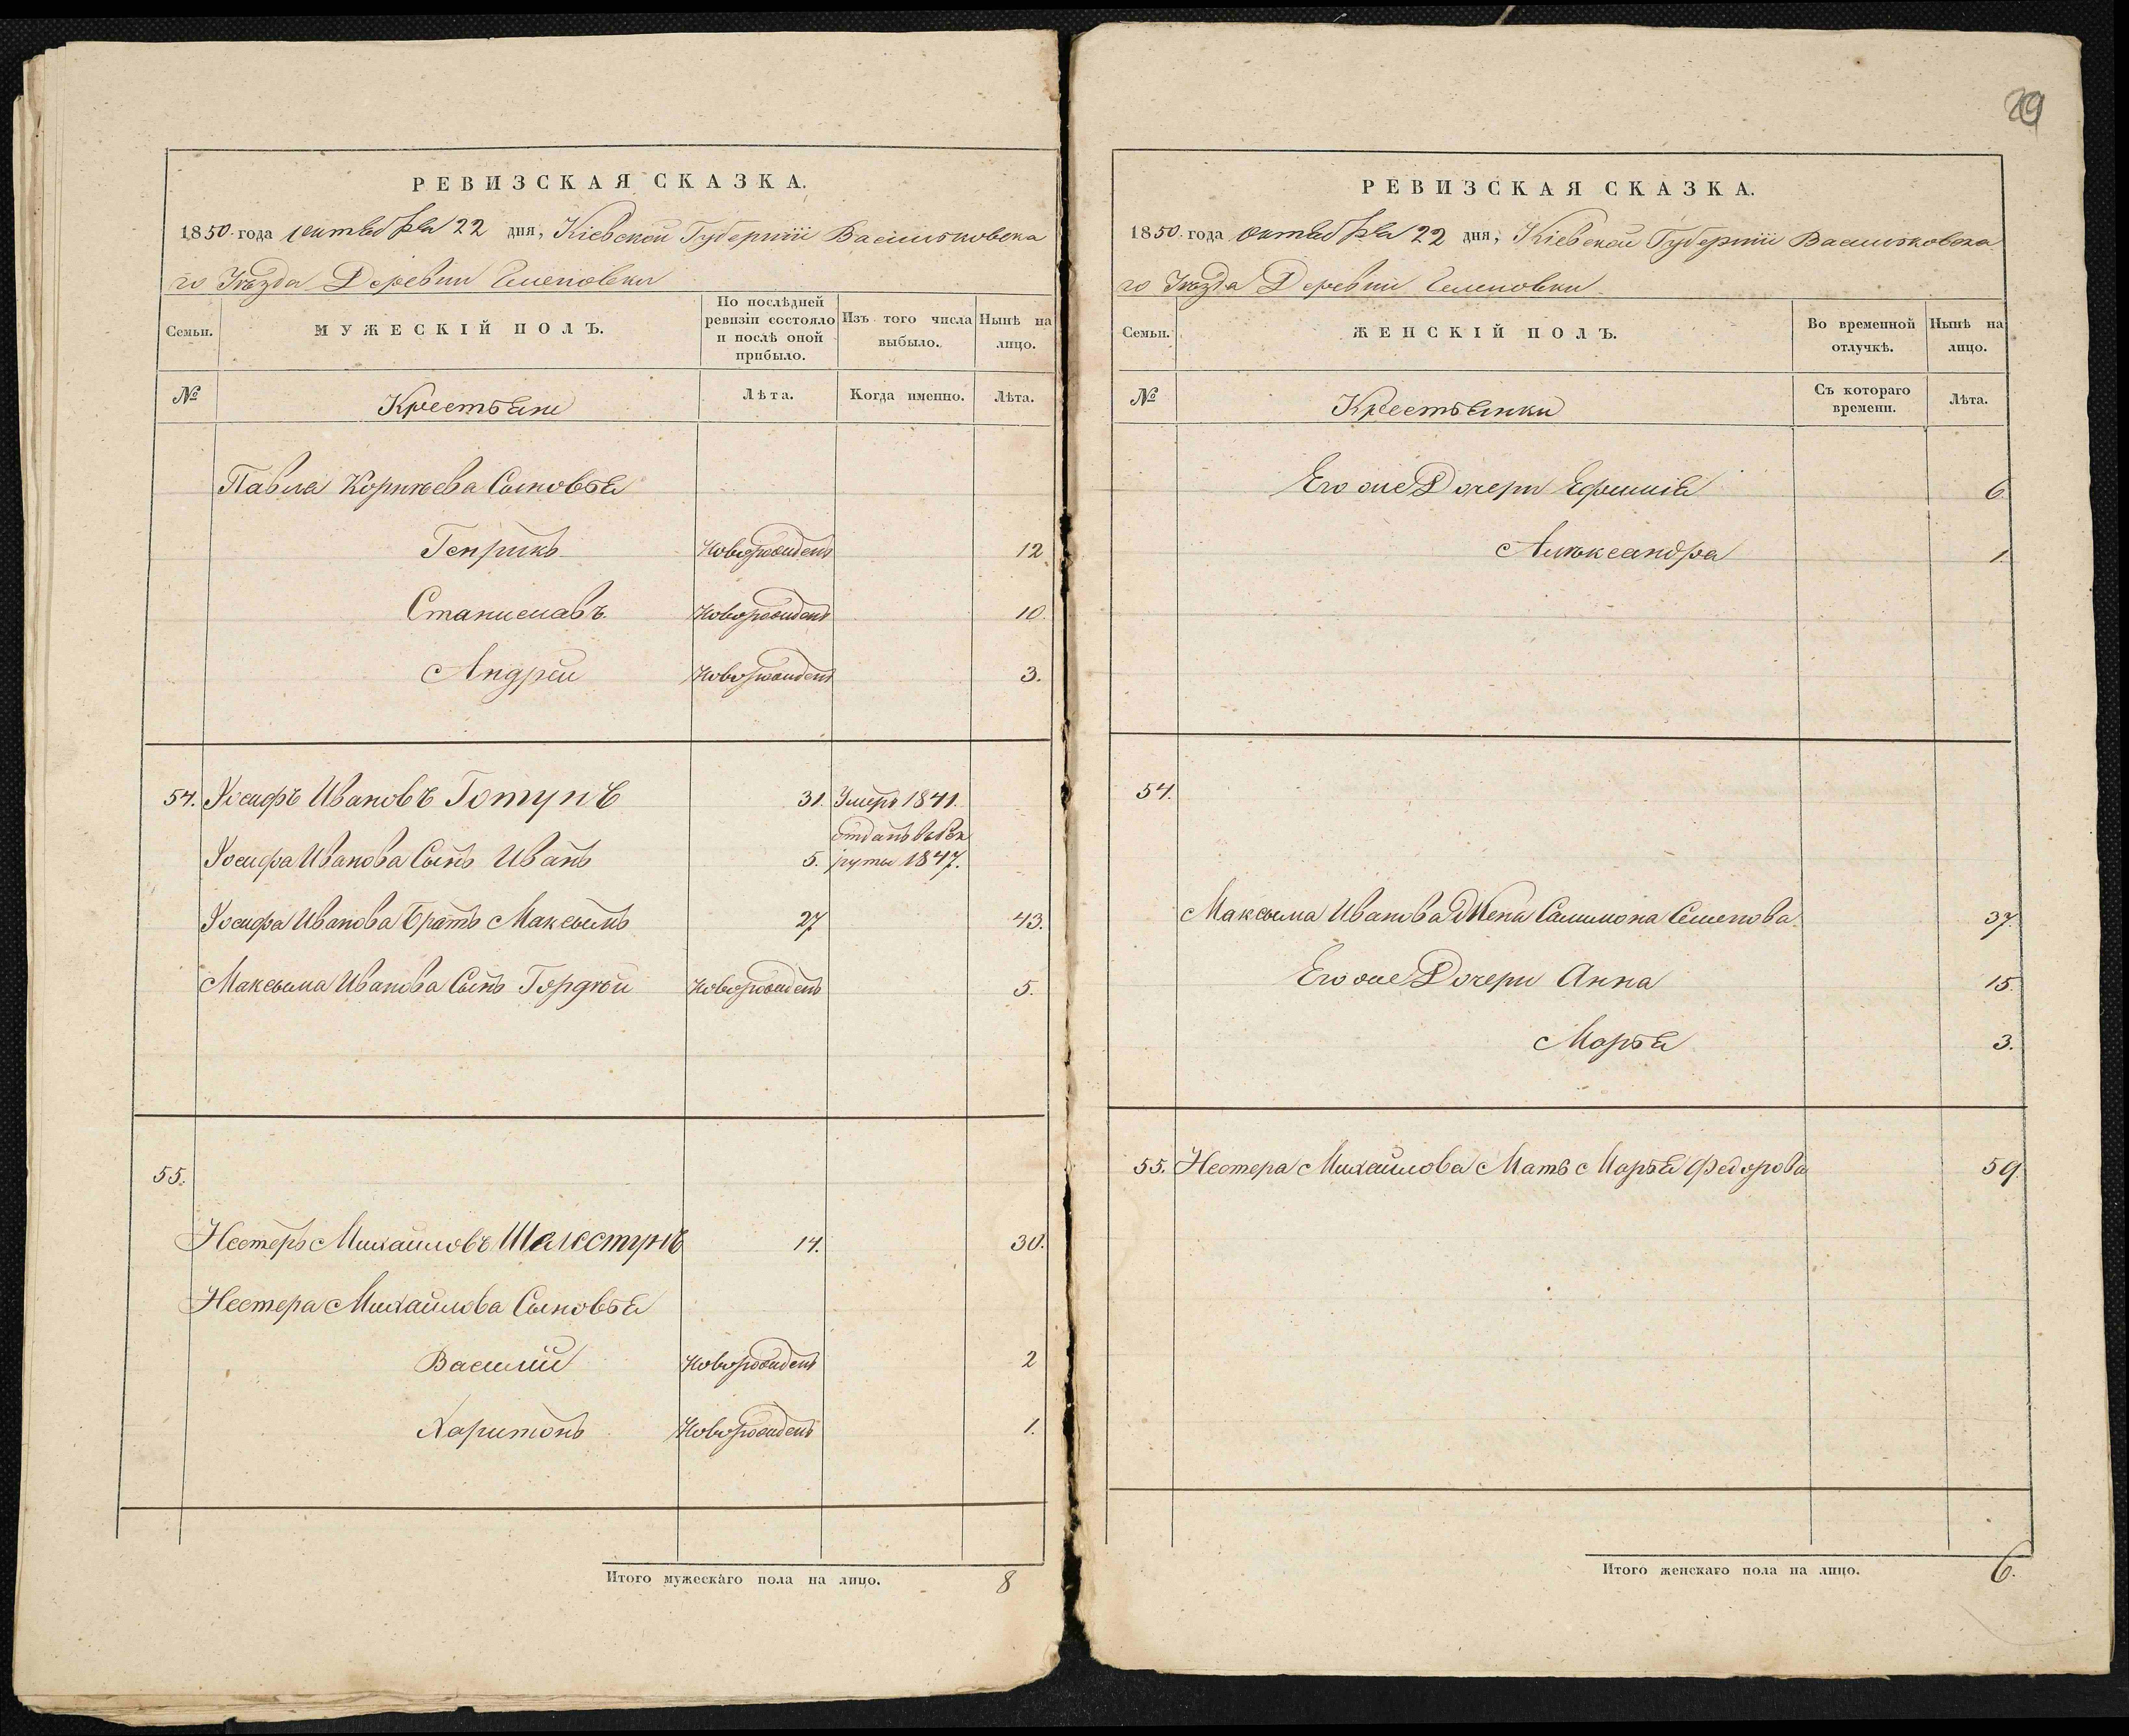 РЕВИЗСКАЯ СКАЗКА.
1850 года октября 22 дня, Кіевской Губерніи Васильковска
го Уѣзда Деревни
Семьи.
МУЖЕСКІЙ ПОЛЪ.
По послѣдней
ревизіи состояло
и послѣ оной
прибыло.
Изъ того числа
выбыло.
Нынѣ на
лицо.
№
Крестьяне
Лѣта.
Когда именно.
Лѣта.
Павла Корнѣева Сыновья
Генрикъ Новорожденъ 12
Станиславъ Новорожденъ 10.
Андрей Новорожденъ 3.
54. Іосифъ Ивановъ Готунъ 31. Умеръ 1841.
отданъ въ Рек
Іосифа Иванова Сынъ Иванъ 5. руты 1847.
Іосифа Иванова Братъ Максымъ 27 43.
Максыма Иванова Сынъ Гордѣй Новорожденъ 5.
55.
Нестеръ Михайловъ Шелестунъ 14. 30.
Нестера Михайлова Сыновья
Василій Новорожденъ 2
Харитонъ Новорожденъ 1.
Итого мужескаго пола на лицо. 8
РЕВИЗСКАЯ СКАЗКА.
1850 года октября 22 дня, Кіевской Губерніи Васильковска
го Уѣзда Деревни
Семьи.
ЖЕНСКІЙ ПОЛЪ.
Во временной
отлучкѣ.
Нынѣ на
лицо.
№
Крестьянки
Съ котораго
времени.
Лѣта.
Его же Дочери Ефимія 6
Алѣксандра 1.
54.
Максыма Иванова Жена Салимона Семенова 37.
Его же Дочери Анна 15.
Марья 3.
55. Нестера Михайлова Мать Марья Федорова 59.
Итого женскаго пола на лицо. 6.